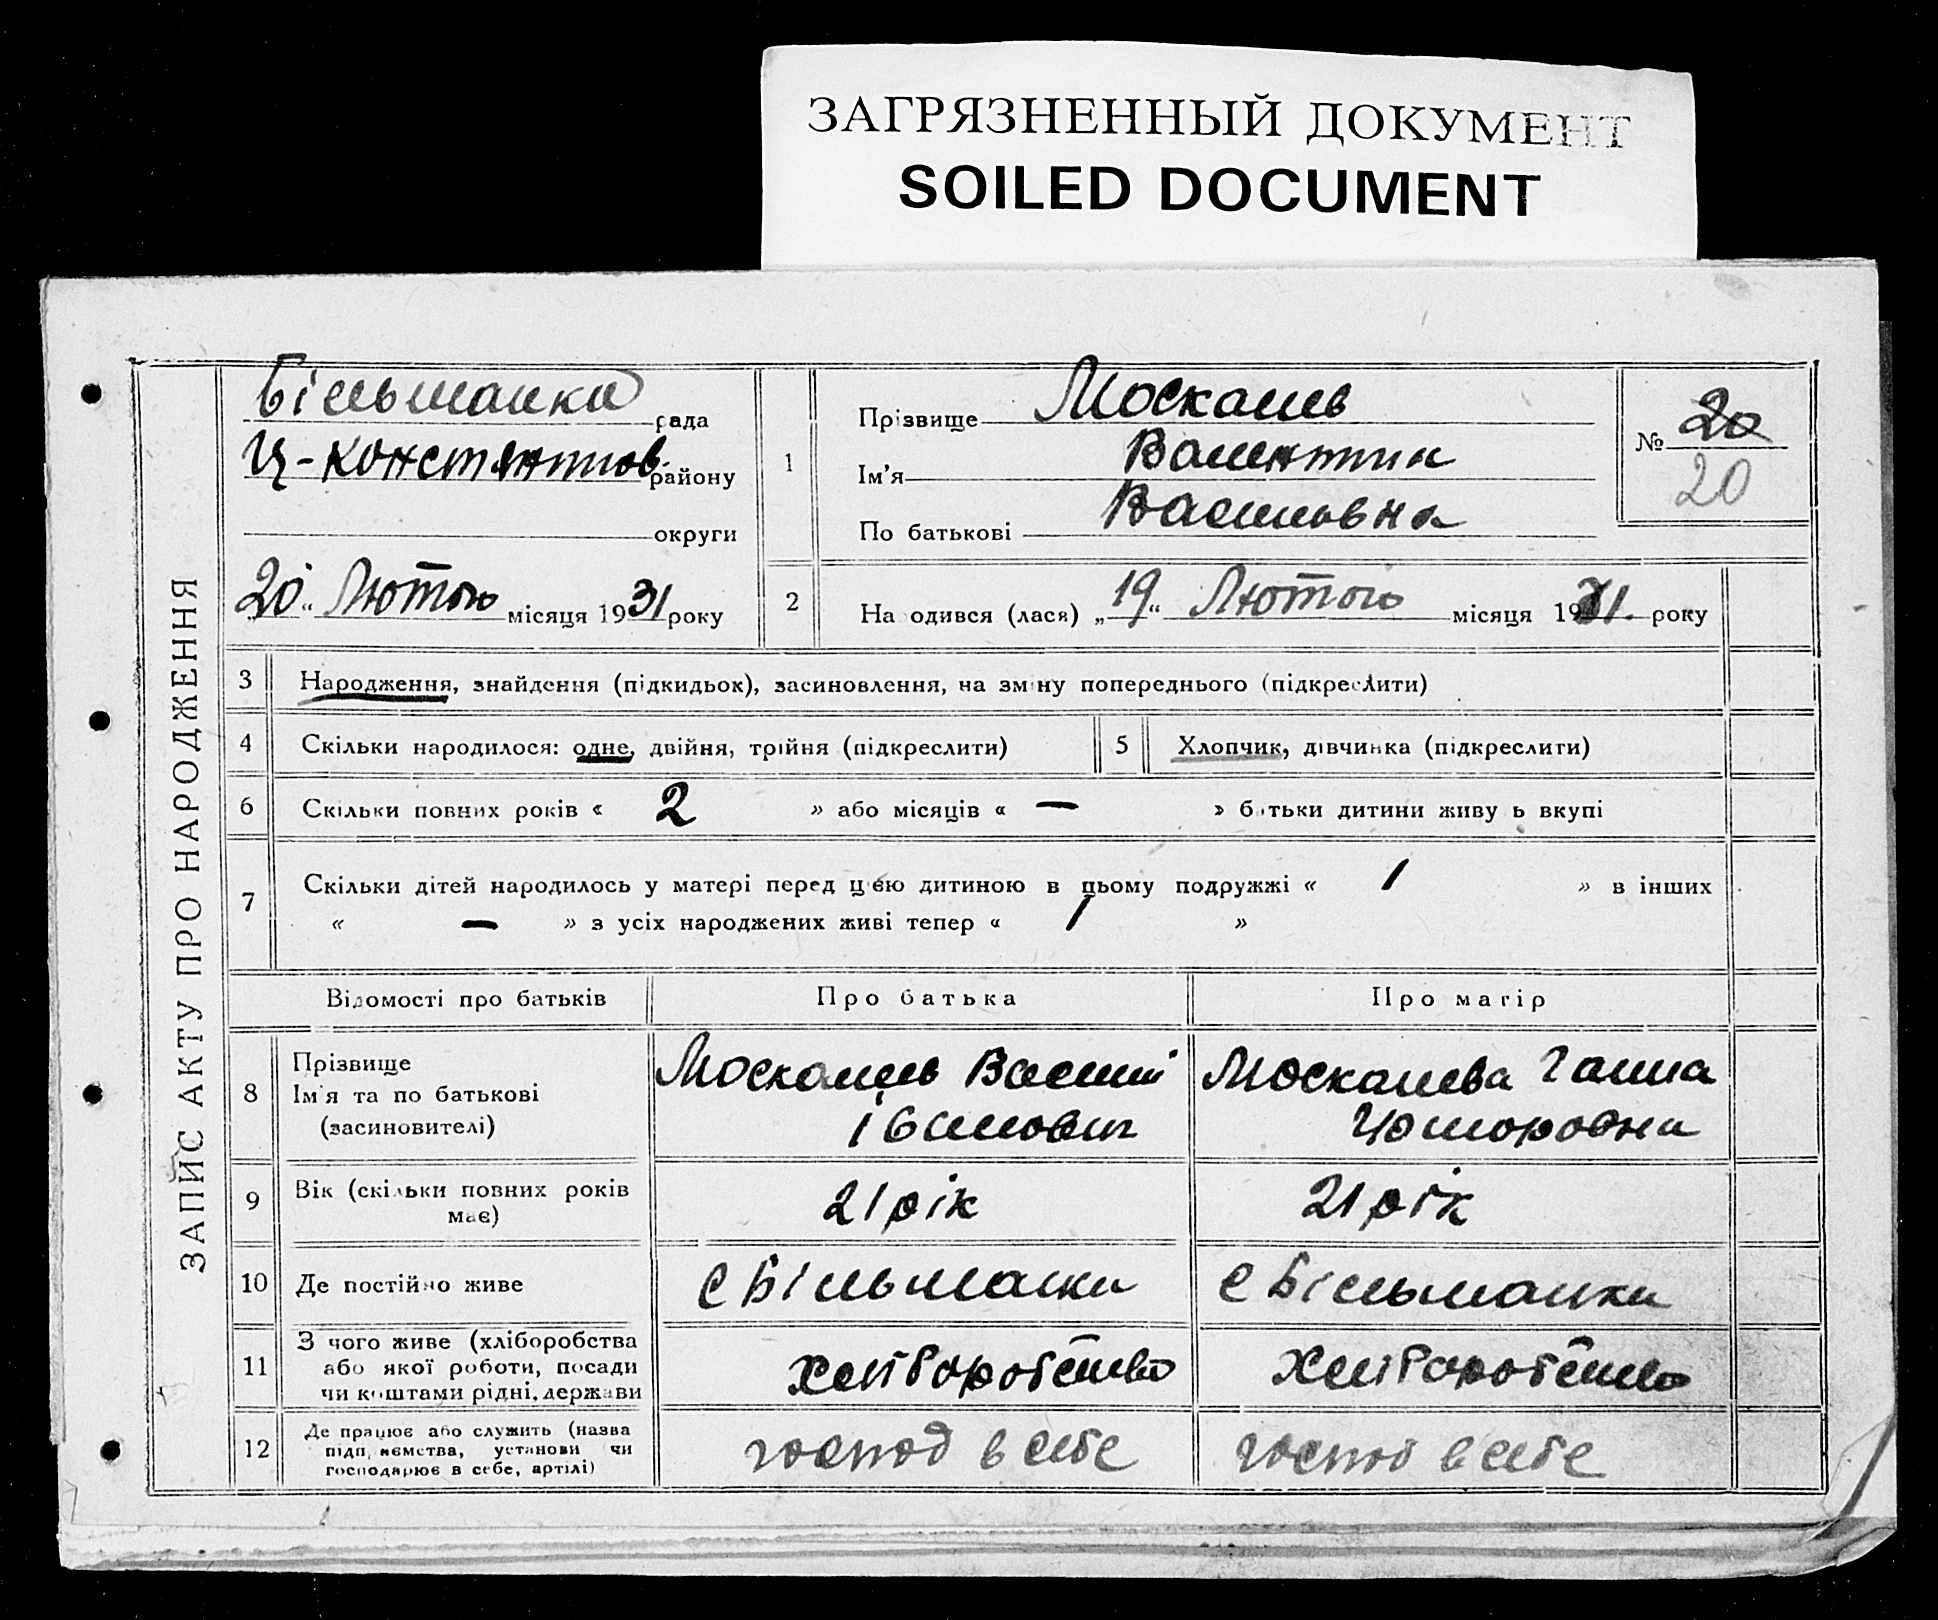 ЗАГРЯЗНЕННЫЙ ДОКУМЕНТ
SOILED DOCUMENT
ЗАПИС АКТУ ПРО НАРОДЖЕННЯ
Більманка рада
Ц-Констянтинов району
округи
20 " Лютого місяця 1931 року
1
Прізвище Москалев
Ім'я Валентин
По батькові Василовна
№ 20
20
2 Народився (лася) „ 19 " Лютого місяця 1931. року
3 Народження, знайдення (підкидьок), засиновлення, на зміну попереднього (підкреслити)
4 Скільки народилося: одне, двійня, трійня (підкреслити) 5 Хлопчик, дівчинка (підкреслити)
6 Скільки повних років « 2 » або місяців « — » батьки дитини живуть вкупі
7 Скільки дітей народилось у матері перед цією дитиною в цьому подружжі « 1 » в інших
« — » з усіх народжених живі тепер « 1 »
Відомості про батьків Про батька Про матір
8 Прізвище
Ім'я та по батькові
(засиновителі)
Москалев Василій
Москалева Ганна
9 Вік (скільки повних років
має)
21 рік 21 рік
10 Де постійно живе с Більманка с Більманка
11 З чого живе (хліборобства
або якої роботи, посади
чи коштами рідні, держави
хліборобство хліборобство
12 Де працює або служить (назва
підприємства, установи чи
господарює в себе, артілі)
господ в себе господ в себе